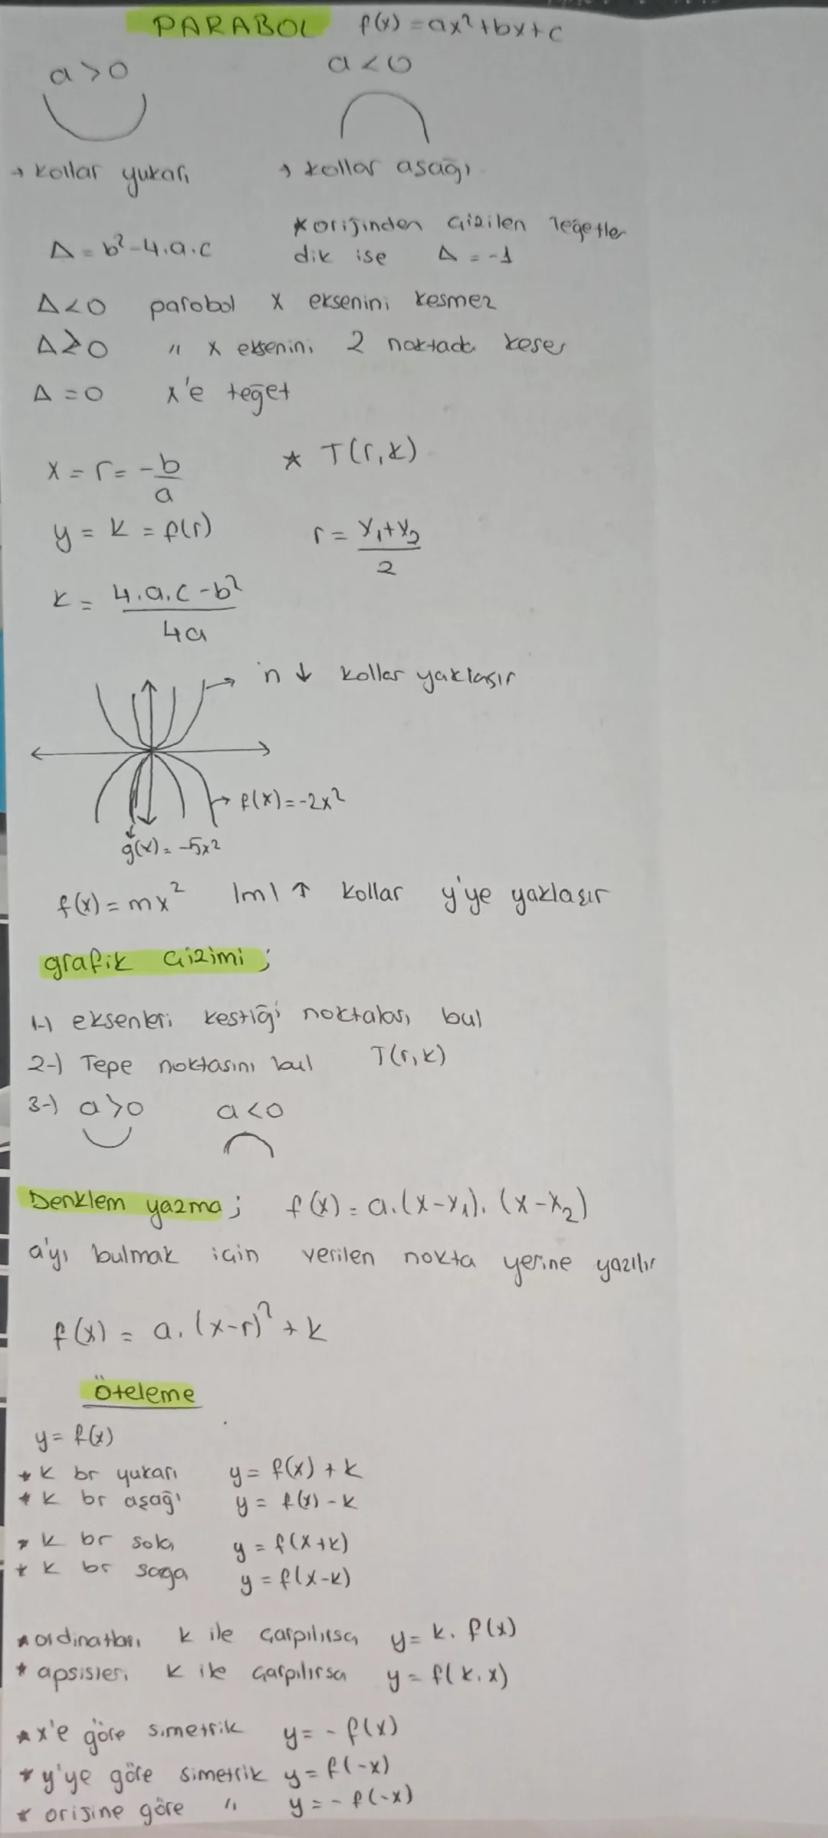 PARABOL f(x) = ax²+bx+c
a>0 a<0
→ kollar yukarı → kollar aşağı
Δ = b²-4.a.c
* orijinden çizilen teğetler
dik ise Δ = -1
Δ<0 parabol x eksenini kesmez
Δ≥0 " x eksenini 2 noktada keser
Δ = 0 x'e teğet
x = r = -b/a * T(r,k)
y = k = f(r) r = x₁+x₂/2
k = 4.a.c-b²/4a
n ↓ kollar yaklaşır
f(x) = -2x²
g(x) = -5x²
f(x) = mx² |m| ↑ kollar y'ye yaklaşır
grafik çizimi ;
1-) eksenleri kestiği noktaları bul
2-) Tepe noktasını bul T(r,k)
3-) a>0 a<0
Denklem yazma ; f(x) = a.(x-x₁).(x-x₂)
a'yı bulmak için verilen nokta yerine yazılır
f(x) = a.(x-r)²+k
Öteleme
y = f(x)
* k br yukarı y = f(x) + k
* k br aşağı y = f(x) - k
* k br sola y = f(x+k)
* k br sağa y = f(x-k)
* ordinatları k ile çarpılırsa y = k. f(x)
* apsisleri k ile çarpılırsa y = f(k.x)
* x'e göre simetrik y = - f(x)
* y'ye göre simetrik y = f(-x)
* orijine göre " y = - f(-x)